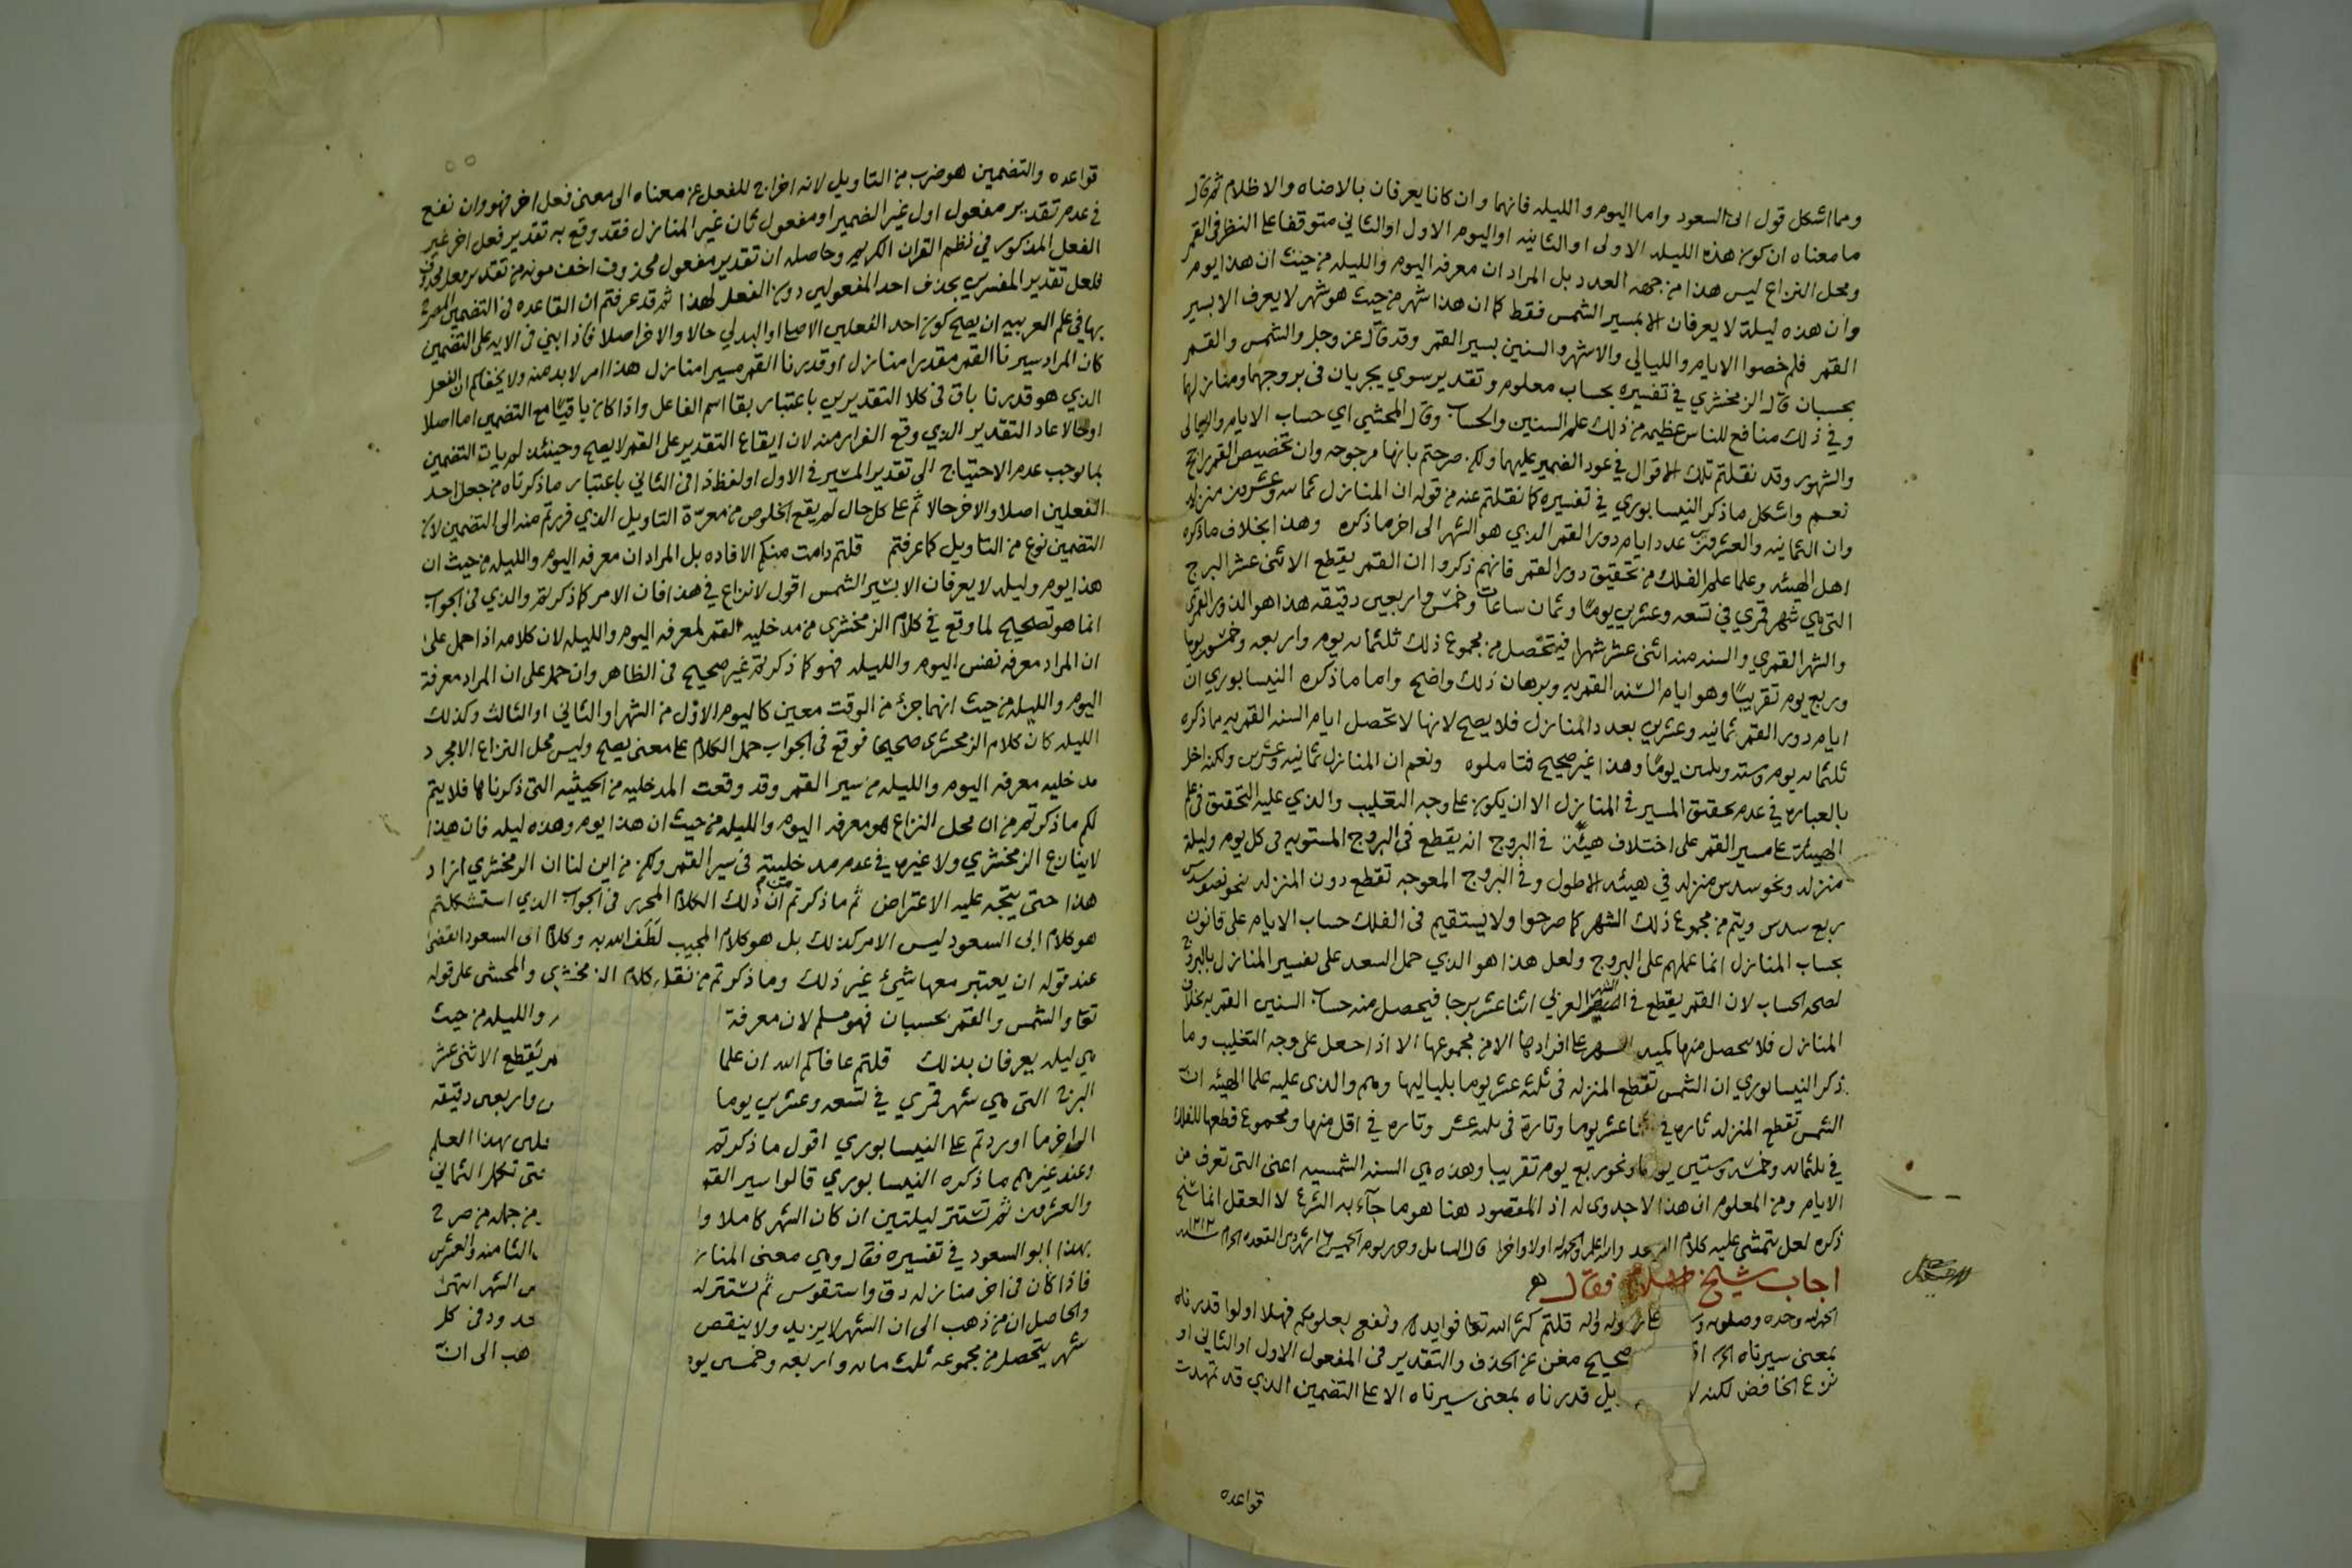 ومما اشكل قول ابى السعود واما اليوم والليله فانهما وان كانا يعرفان بالاضاه والاظلام ثم قال
ما معناه ان كون هذه الليله الاولى او الثانيه او اليوم الاول او الثاني متوقفا على النظر فى القمر
ومحل النزاع ليس هذا من جهه العدد بل المراد ان معرفه اليوم والليله من حيث ان هذا يوم
وان هذه ليلة لا يعرفان الا بمسير الشمس فقط كما ان هذا شهر من حيث هو شهر لا يعرف الا بسير
القمر فلم خصوا الايام والليالي والاشهر والسنين بسير القمر وقد قال عز وجل والشمس والقمر
بحسبان قال الزمخشري في تفسيره بحساب معلوم وتقدير سوي يجريان فى بروجهما ومنازلهما
وفي ذلك منافع للناس عظيمه من ذلك علم السنين والحساب وقال المحشي اي حساب الايام والليالى
والشهور وقد نقلتم تلك الاقوال في عود الضمير عليهما ولكن صرحتم بانها مرجوحه وان تخصيص القمر راجح
نعم واشكل ما ذكر النيسابوري في تفسيره كما نقلتم عنه من قوله ان المنازل ثمانيه وعشرون منزله
وان الثمانيه والعشرين عدد ايام دور القمر الذي هو الشهر الى اخر ما ذكره وهذا بخلاف ما ذكره
اهل الهيئه وعلما علم الفلك من تحقيق دور القمر فانهم ذكروا ان القمر يقطع الاثنى عشر البرج
التى هي شهر قمري في تسعه وعشرين يومًا وثمان ساعات وخمس واربعين دقيقه هذا هو الدور القمرى
والشهر القمري والسنه منه اثنى عشر شهرا فيتحصل من مجموع ذلك ثلثمايه يوم واربعه وخمسون يوما
وربع يوم تقريبًا وهو ايام السنه القمريه وبرهان ذلك واضح واما ما ذكره النيسابوري ان
ايام دور القمر ثمانيه وعشرين بعدد المنازل فلا يصح لانها لا تحصل ايام السنه القمريه بما ذكره
ثلثمايه يوم وسته وثلثين يومًا وهذا غير صحيح فتاملوه ونعم ان المنازل ثمانيه وعشرين ولكن اخل
بالعباره في عدم تحقيق المسير في المنازل الا ان يكون على وجه التغليب والذي عليه التحقيق فى علم
الهيئة على مسير القمر على اختلاف هيئته في البروج انه يقطع في البروج المستويه فى كل يوم وليلة
منزله ونحو سدس منزله في هيئه الاطول وفي البروج المعوجه تقطع دون المنزله نحو نصف سدس
ربع سدس ويتم من مجموع ذلك الشهر كما صرحوا ولا يستقيم فى الفلك حساب الايام على قانون
بحساب المنازل انما عملهم على البروج ولعل هذا هو الذي حمل السعد على تفسير المنازل بالبروج
لصحه الحساب لان القمر يقطع في الشهر العربي اثنا عشر برجا فيحصل منه حساب السنين القمريه بخلاف
المنازل فلا يحصل منها كميه الشهر على افرادها الا من مجموعها الا اذا جعل على وجه التغليب وما
ذكر النيسابوري ان الشمس تقطع المنزله فى ثلثه عشر يوما بلياليها وهم والذى عليه علما الهيئه ان
الشمس تقطع المنزله تاره في اثنا عشر يوما وتارة فى ثلثه عشر وتاره في اقل منها ومجموع قطعها للفلك
في ثلثمايه وخمسه وستين يوما ونحو ربع يوم تقريبا وهذه هي السنه الشمسيه اعنى التى تعرف من
الايام ومن المعلوم ان هذا لا جدوى له اذ المقصود هنا هو ما جآء به الشرع لا العقل انما شيخ
ذكره لعل يتمشى عليه كلام السعد والله اعلم والحمد لله اولا واخرا قال السايل وحرر يوم الخميس ٦ اشهر ذى القعده الحرام سنه ١٢١٣
اجاب شيخ الاسلام فقال
الحمد لله وحده وصلوته على رسوله واله قلتم كثر الله تعا فوايدكم ونفع بعلومكم فهلا اولوا قدرناه
بمعنى سيرناه صحيح مغن عن الحذف والتقدير فى المفعول الاول او الثاني او
نزع الخافض لكنه لا بيل قدرناه بمعنى سيرناه الا على التضمين الذي قد تمهدت
قواعده
قواعده والتضمين هو ضرب من التاويل لانه اخراج للفعل عن معناه الى معنى فعل اخر فهو وان نفع
في عدم تقدير مفعول اول غير الضمير او مفعول ثان غير المنازل فقد وقع به تقدير فعل اخر غير
الفعل المذكور في نظم القران الكريم وحاصله ان تقدير مفعول محذوف اخف مونه من تقدير فعل محذوف
فلعل تقدير المفسرين بحذف احد المفعولين دون الفعل لهذا ثم قد عرفتم ان القاعده فى التضمين المصرح
بها في علم العربيه ان يصلح كون احد الفعلين الاصلى او البدلي حالا والاخر اصلا فاذا ابني فى الايه على التضمين
كان المراد سيرنا القمر مقدرا منازل او قدرنا القمر مسيرا منازل هذا امر لا بد منه ولا يخفاكم ان الفعل
الذي هو قدرنا باق فى كلا التقديرين باعتبار بقا اسم الفاعل واذا كان باقيًا مع التضمين اما اصلا
او حالا عاد التقدير الذي وقع الفرار منه لان ايقاع التقدير على القمر لا يصح وحينئذ لم يات التضمين
بما يوجب عدم الاحتياج الى تقدير المسير في الاول او لفظ ذا فى الثاني باعتبار ما ذكرناه من جعل احد
الفعلين اصلا والاخر حالا ثم على كل حال لم يقع الخلوص من معرّة التاويل الذي فررتم منه الى التضمين لان
التضمين نوع من التاويل كما عرفتم قلتم دامت منكم الافاده بل المراد ان معرفه اليوم والليله من حيث ان
هذا يوم وليله لا يعرفان الا بسير الشمس اقول لا نزاع في هذا فان الامر كما ذكرتم والذي فى الجواب
انما هو تصحيح لما وقع في كلام الزمخشرى من مدخليه القمر لمعرفه اليوم والليله لان كلامه اذا حمل على
ان المراد معرفه نفس اليوم والليله فهو كما ذكرتم غير صحيح فى الظاهر وان حمل على ان المراد معرفة
اليوم والليله من حيث انهما جزء من الوقت معين كاليوم الاول من الشهر او الثاني او الثالث وكذلك
الليله كان كلام الزمخشرى صحيحا فوقع فى الجواب حمل الكلام على معنى يصح وليس محل النزاع الا مجرد
مدخليه معرفه اليوم والليله من سير القمر وقد وقعت المدخليه من الحيثيه التى ذكرناها فلا يتم
لكم ما ذكرتم من ان محل النزاع هو معرفه اليوم والليله من حيث ان هذا يوم وهذه ليله فان هذا
لا ينازع الزمخشري ولا غيره في عدم مدخليته فى سير القمر ولكن من اين لنا ان الزمخشري اراد
هذا حتى يتجه عليه الاعتراض ثم ما ذكرتم ان ذلك الكلام المحرر فى الجواب الذي استشكلتم
هو كلام ابى السعود ليس الامر كذلك بل هو كلام المجيب لَطَف الله به وكلام ابى السعود انقضى
عند قوله ان يعتبر معها شيئ غير ذلك وما ذكرتم من نقل كلام الزمخشري والمحشى على قوله
تعا والشمس والقمر بحسبان فهو مسلم لان معرفة ا م والليله من حيث
هي ليله يعرفان بذلك قلتم عافاكم الله ان علما مر يقطع الاثنى عشر
البرج التى هي شهر قمري في تسعه وعشرين يوما س واربعين دقيقه
الى اخر ما اوردتم على النيسابوري اقول ما ذكرتم غلين بهذا العلم
وعند غيرهم ما ذكره النيسابوري قالوا سير القم متى تكمل الثماني
والعشرين ثم تستتر ليلتين ان كان الشهر كاملا وا من جمله من صرح
بهذا ابو السعود في تفسيره فقال وهي معنى المناز الثامنه والعشرين
فاذا كان فى اخر منازله دق واستقوس ثم يستتر له س الشهر انتهى
والحاصل ان من ذهب الى ان الشهر لا يزيد ولا ينقص حدود فى كل
شهر يتحصل من مجموعه ثلث مايه واربعه وخمسين يو هب الى ان